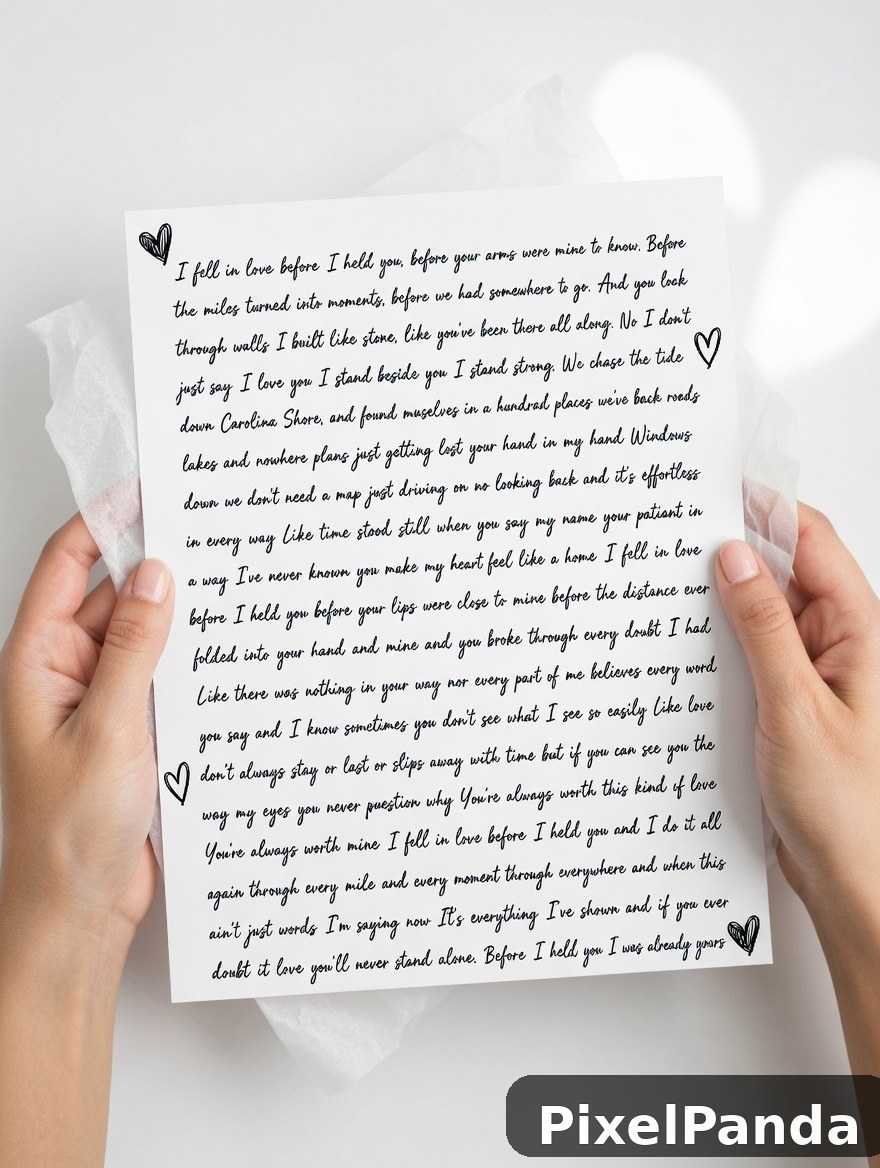 I fell in love before I held you, before your arms were mine to know. Before
the miles turned into moments, before we had somewhere to go. And you look
through walls I built like stone, like you've been there all along. No I don't
just say I love you I stand beside you I stand strong. We chase the tide
down Carolina Shore, and found muselves in a hundrad places we've back roads
lakes and nowhere plans just getting lost your hand in my hand Windows
down we don't need a map just driving on no looking back and it's effortless
in every way Like time stood still when you say my name your patiant in
a way I've never known you make my heart feel like a home I fell in love
before I held you before your lips were close to mine before the distance ever
folded into your hand and mine and you broke through every doubt I had
Like there was nothing in your way nor every part of me believes every word
you say and I know sometimes you don't see what I see so easily Like love
don't always stay or last or slips away with time but if you can see you the
way my eyes you never question why You're always worth this kind of love
You're always worth mine I fell in love before I held you and I do it all
again through every mile and every moment through everywhere and when this
ain't just words I'm saying now It's everything I've shown and if you ever
doubt it love you'll never stand alone. Before I held you I was already yours
PixelPanda